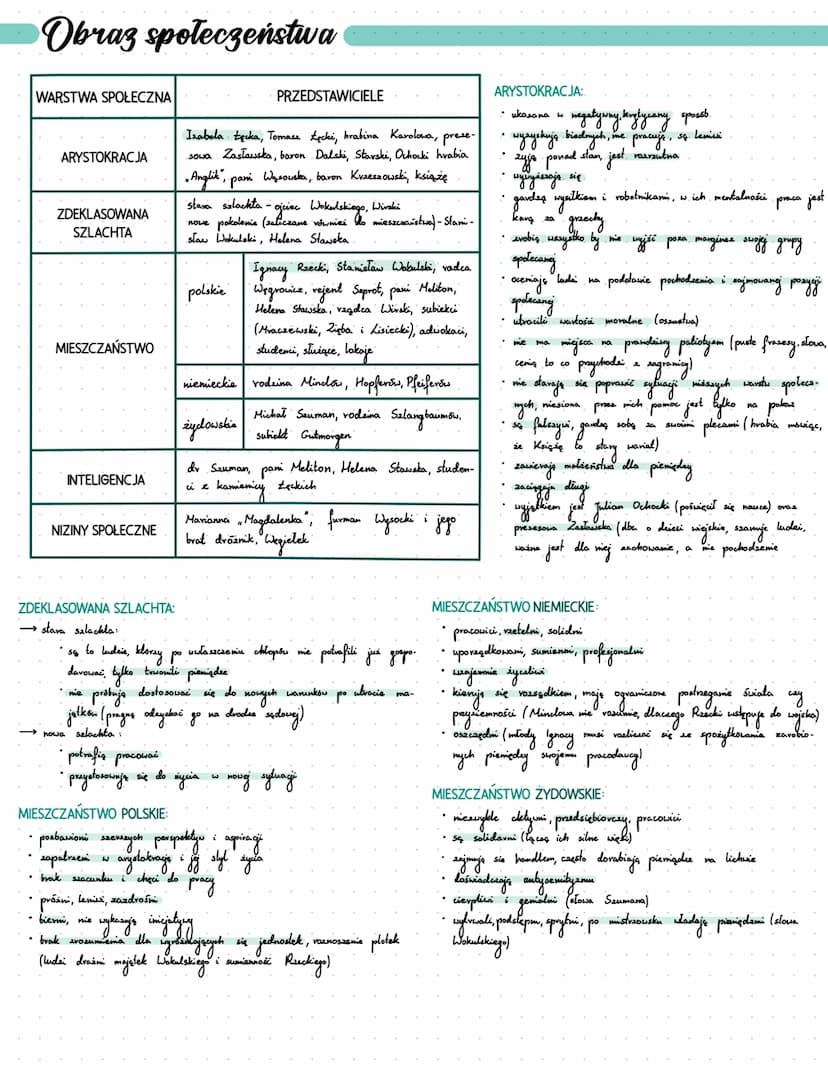 Obraz społeczeństwa
WARSTWA SPOŁECZNA
PRZEDSTAWICIELE
ARYSTOKRACJA
Izabela Łęcka, Tomasz Łęcki, hrabina Karolowa, preze-
sowa Zasławska, baron Dalski, Starski, Ochocki hrabia
„Anglik", pani Wąsowska, baron Krzeszowski, książę
ZDEKLASOWANA
SZLACHTA
stara szlachta - ojciec Wokulskiego, Wirski
nowe pokolenie (zaliczane również do mieszczaństwa) - Stani-
sław Wokulski, Helena Stawska
MIESZCZAŃSTWO
polskie
Ignacy Rzecki, Stanisław Wokulski, radca
Węgrowicz, rejent Szprot, pani Meliton,
Helena Stawska, rządca Wirski, subiekci
(Mraczewski, Zięba i Lisiecki), adwokaci,
studenci, służące, lokaje
niemieckie
rodzina Minclów, Hopferów, Pfeiferów
żydowskie
Michał Szuman, rodzina Szlangbaumów,
subiekt Gutmorgen
INTELIGENCJA
dr Szuman, pani Meliton, Helena Stawska, studen-
ci z kamienicy Łęckich
NIZINY SPOŁECZNE
Marianna „Magdalenka", furman Wysocki i jego
brat dróżnik, Węgiełek
ARYSTOKRACJA:
· ukazana w negatywny, krytyczny sposób
· wyzyskują biednych, nie pracują, są leniwi
· żyją ponad stan, jest rozrzutna
· wywyższają się
· gardzą wysiłkiem i robotnikami, w ich mentalności praca jest
karą za grzechy
· zrobią wszystko by nie wyjść poza margines swojej grupy
społecznej
· oceniają ludzi na podstawie pochodzenia i zajmowanej pozycji
społecznej
· utracili wartości moralne (oszustwa)
· nie ma miejsca na prawdziwy patiotyzm (puste frazesy, słowa,
cenią to co przychodzi z zagranicy)
· nie starają się poprawić sytuacji niższych warstw społecz-
nych, niesiona przez nich pomoc jest tylko na pokaz
· są fałszywi, gardzą sobą za swoimi plecami (hrabia mówiąc,
że Książę to stary wariat)
· zawierają małżeństwa dla pieniędzy
· zaciągają długi
· wyjątkiem jest Julian Ochocki (poświęcił się nauce) oraz
prezesowa Zasławska (dba o dzieci wiejskie, szanuje ludzi,
ważne jest dla niej zachowanie, a nie pochodzenie
ZDEKLASOWANA SZLACHTA:
→ stara szlachta:
· są to ludzie, którzy po uwłaszczeniu chłopów nie potrafili już gospo-
darować, tylko trwonili pieniądze
· nie próbują dostosować się do nowych warunków po utracie ma-
jątków (pragną odzyskać go na drodze sądowej)
→ nowa szlachta:
· potrafią pracować
· przystosowują się do życia w nowej sytuacji
MIESZCZAŃSTWO POLSKIE:
· pozbawieni szerszych perspektyw i aspiracji
· zapatrzeni w arystokrację i jej styl życia
· brak szacunku i chęci do pracy
· próżni, leniwi, zazdrośni
· bierni, nie wykazują inicjatywy
· brak zrozumienia dla wyróżniających się jednostek, roznoszenie plotek
(ludzi drażni majątek Wokulskiego i sumienność Rzeckiego)
MIESZCZAŃSTWO NIEMIECKIE:
· pracowici, rzetelni, solidni
· uporządkowani, sumienni, profesjonalni
· wzajemnie życzliwi
· kierują się rozsądkiem, mają ograniczone postrzeganie świata czy
przyziemności (Minclowa nie rozumie, dlaczego Rzecki wstępuje do wojska)
· oszczędni (młody Ignacy musi rozliczać się ze spożytkowania zarobio-
nych pieniędzy swojemu pracodawcy)
MIESZCZAŃSTWO ŻYDOWSKIE:
· niezwykle aktywni, przedsiębiorczy, pracowici
· są solidarni (łączą ich silne więzi)
· zajmują się handlem, często dorabiają pieniądze na lichwie
· doświadczają antysemityzmu
· cierpliwi i genialni (słowa Szumana)
· wytrwali, podstępni, sprytni, po mistrzowsku władają pieniędzmi (słowa
Wokulskiego)